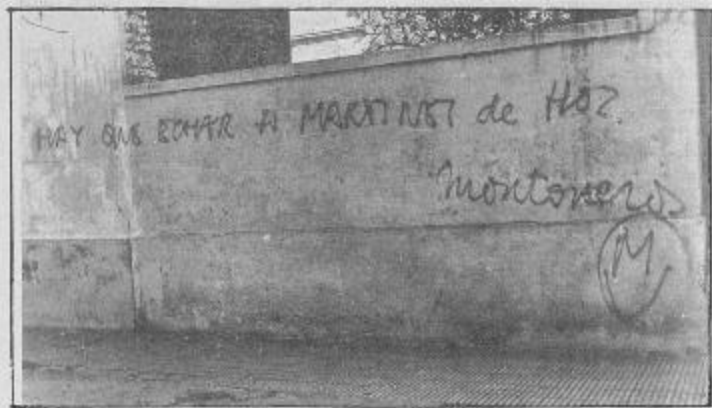 HAY QUE ECHAR A MARTINEZ de HOZ.
Montoneros
M